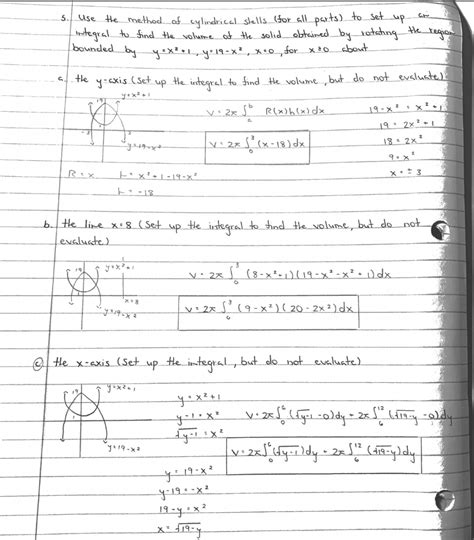 5. Use the method of cylindrical shells (for all parts) to set up an
integral to find the volume of the solid obtained by rotating the region
bounded by y=x²+1, y=19-x², x=0, for x≥0 about
a. the y-axis (Set up the integral to find the volume, but do not evaluate)
y=x²+1
19
V=2π∫₀ᵇ R(x)h(x)dx
19-x²=x²+1
19=2x²+1
-3
3
y=19-x²
V=2π∫₀³(x-18)dx
18=2x²
9=x²
R=x
h=x²+1-19-x²
x=±3
h=-18
b. the line x=8 (Set up the integral to find the volume, but do not
evaluate)
19
y=x²+1
V=2π∫₀³(8-x²+1)(19-x²-x²+1)dx
x=8
y=19-x²
V=2π∫₀³(9-x²)(20-2x²)dx
c. the x-axis (Set up the integral, but do not evaluate)
19
y=x²+1
y=x²+1
y-1=x²
V=2π∫₀⁶(√y-1-0)dy+2π∫₆¹²(√19-y-0)dy
√y-1=x²
y=19-x²
V=2π∫₀⁶(√y-1)dy+2π∫₆¹²(√19-y)dy
y=19-x²
y-19=-x²
19-y=x²
x=√19-y